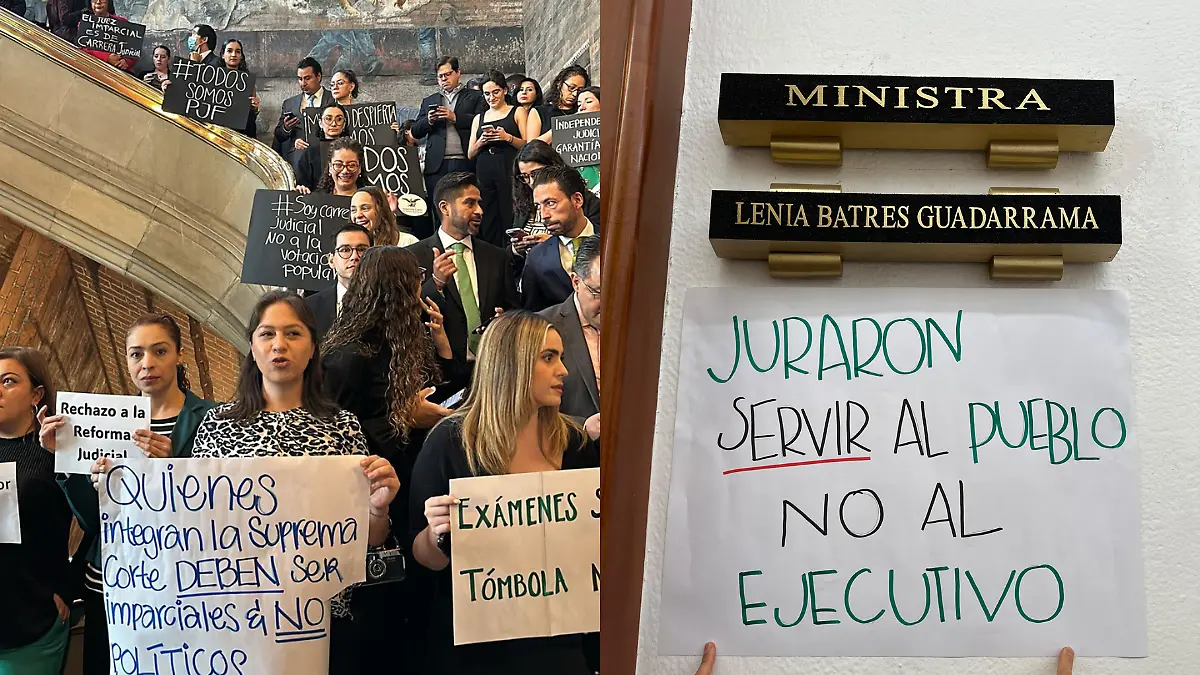 EL JUEZ
IMPARCIAL
ES DE
CARRERA Judicial
#TODOS
SOMOS
PJF
DESPIERTA
INDEPENDENCIA
JUDICIAL
GARANTÍA
NACIO
#Soy carre
Judicial
NO a la
votació
popular
Rechazo a la
Reforma
Judicial
or
QUIENES
integran la Suprema
Corte DEBEN ser
imparciales & NO
POLÍTICOS
EXÁMENES S
TÓMBOLA N
MINISTRA
LENIA BATRES GUADARRAMA
JURARON
SERVIR AL PUEBLO
NO AL
EJECUTIVO